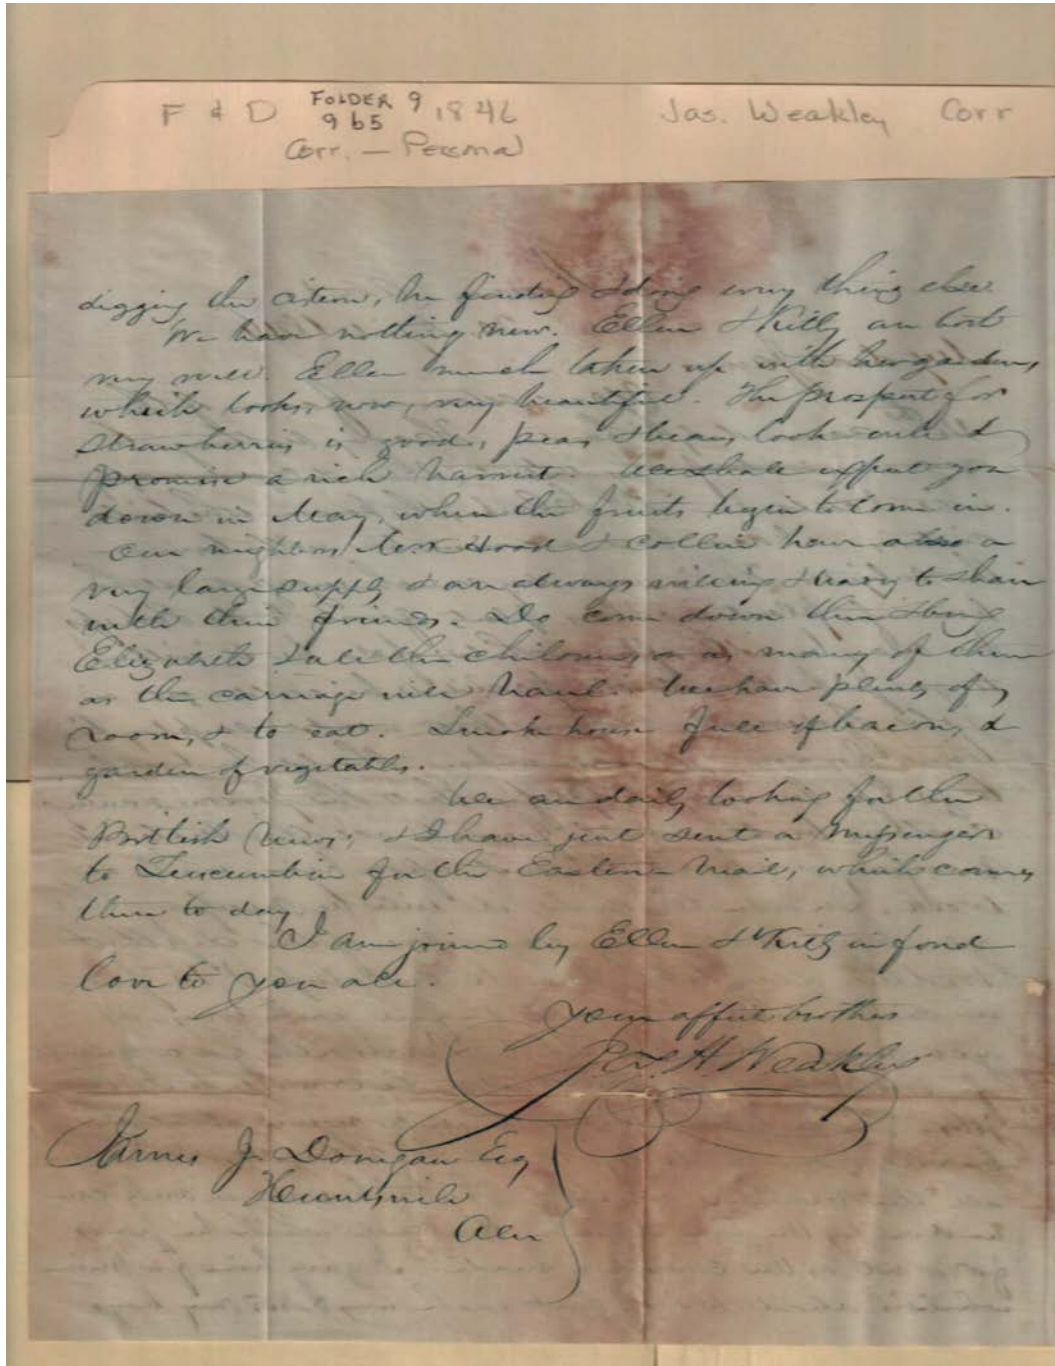 F & D FOLDER 9 1846 Jas. Weakley Corr
9 b5
Corr. — Personal
digging the cistern, he finding & doing every thing else.
We have nothing new. Ellen & Kitty are both
very well. Ellen much taken up with her garden,
which looks, now, very beautiful. The prospect for
strawberries is good, peas & beans look well &
promise a rich harvest. We shall expect you
down in May, when the fruits begin to come in.
Our neighbors Hood & Collier have also a
very large supply & are always willing & ready to share
with their friends. Do come down then & bring
Elizabeth & all the children, or as many of them
as the carriage will haul. We have plenty of
room, & to eat. Smoke house full of bacon, &
garden of vegetables.
We are daily looking for the
British news; & I have just sent a messenger
to Tuscumbia for the Eastern mail, which comes
there to day.
I am joined by Ellen & Kitty in fond
love to you all.
Your affect brother
Jas. H. Weakley
James J. Donegan Esq
Huntsville
Ala